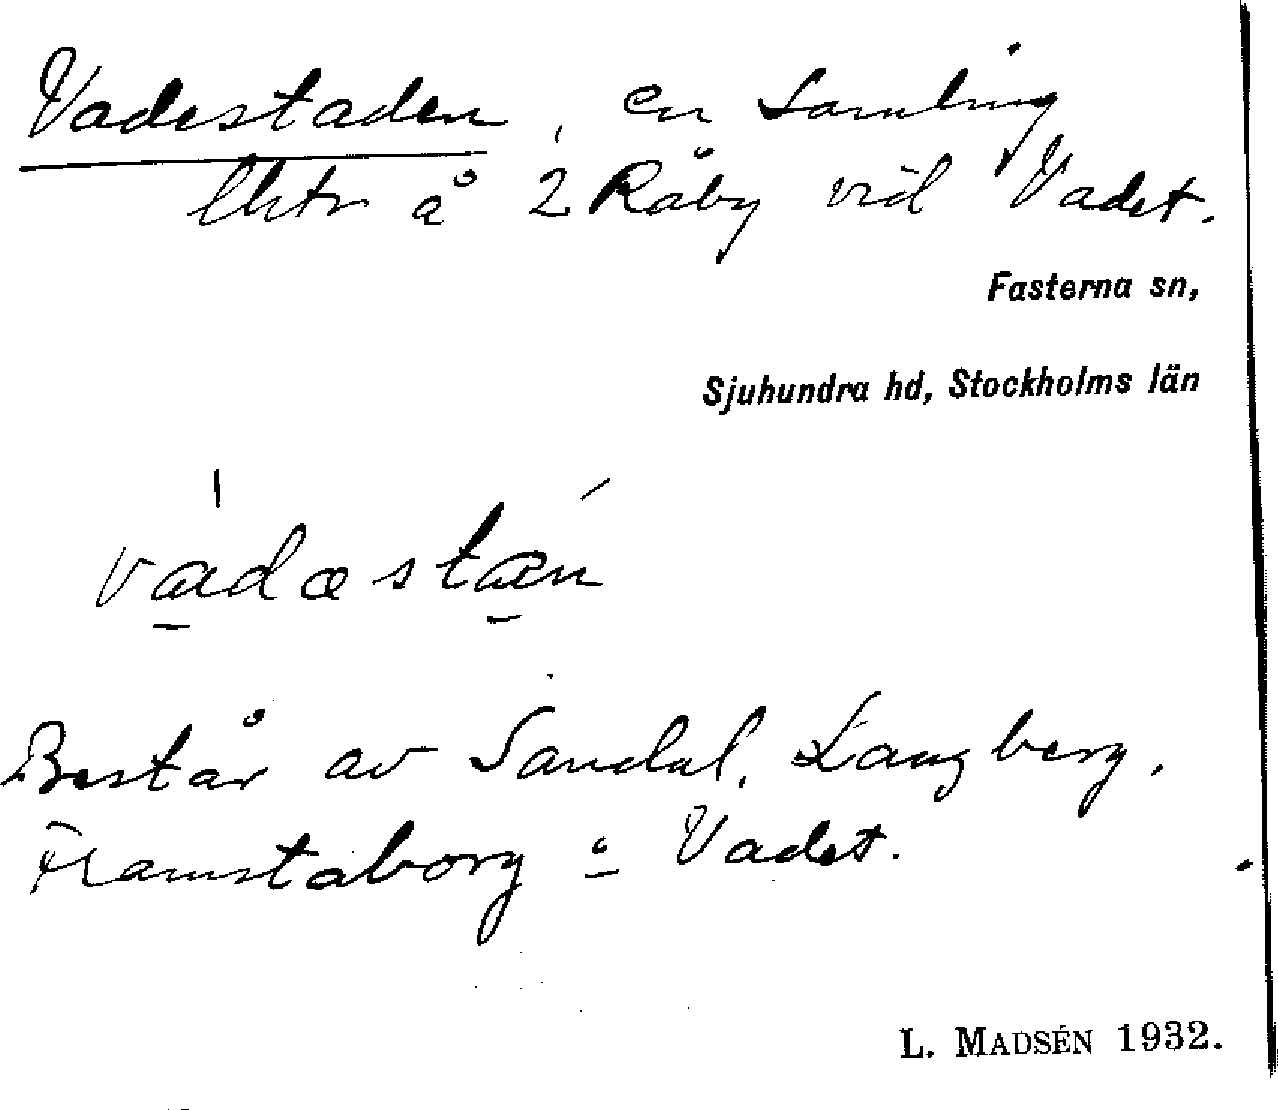 Vadestaden, en samling
lhtr å 2 Råby vid Vadet.
Fasterna sn,
Sjuhundra hd, Stockholms län
vadæstan
Består av Sandal, Langberg,
Framstaborg o Vadet.
L. MADSÉN 1932.